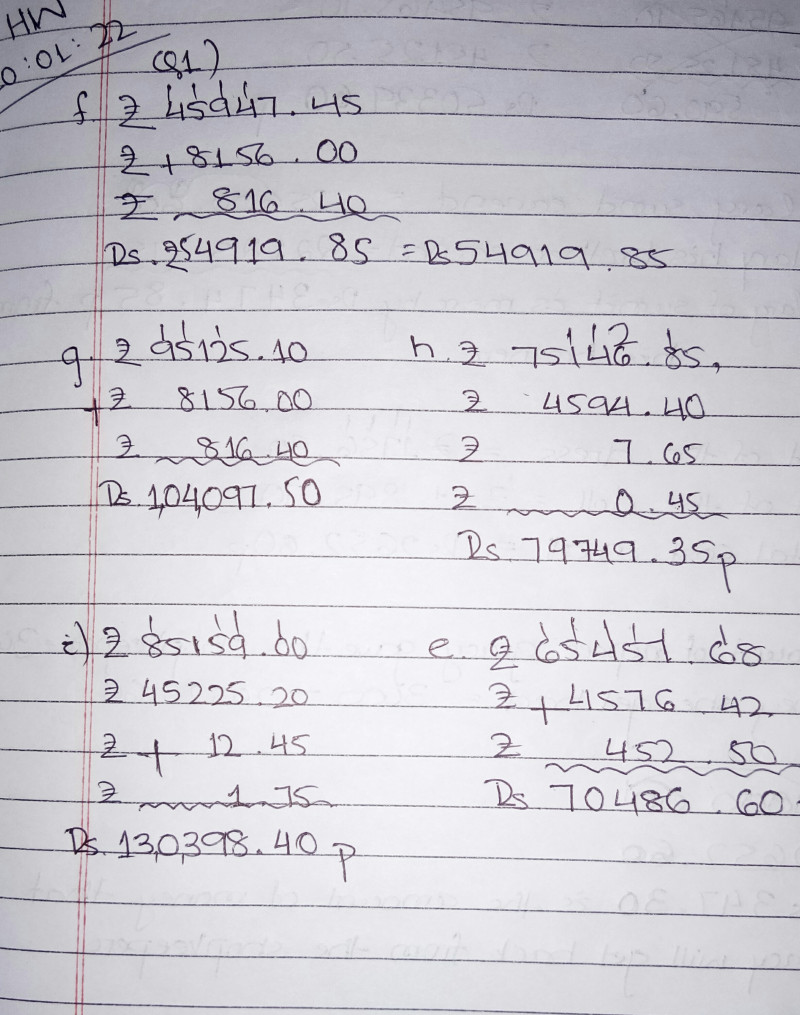 HW
0:01:22
(Q1)
f ₹ 45947.45
₹ +8156.00
₹ 816.40
Rs. ₹54919.85 = Rs 54919.85
g. ₹ 95125.10
+₹ 8156.00
₹ 816.40
Rs. 1,04,097.50
h. ₹ 75146.85,
₹ 4594.40
₹ 7.65
₹ 0.45
Rs. 79749.35p
i) ₹ 85159.00
₹ 45225.20
₹ + 12.45
₹ 1.75
Rs. 13,0,398.40 p
e. ₹ 65457.68
₹ + 4576.42
₹ 452.50
Rs 70486.60